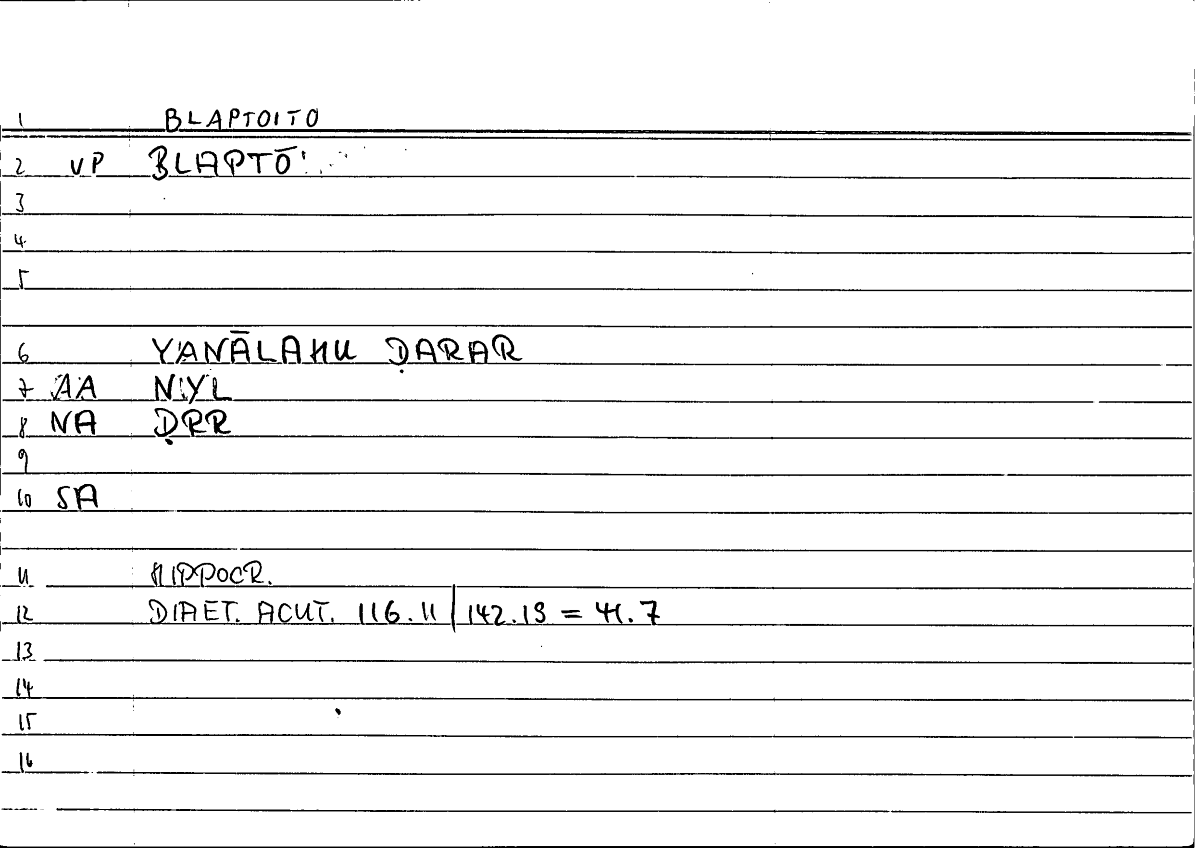 1 BLAPTOITO
2 VP BLAPTŌ
3
4
5
6 YANĀLAHU ḌARAR
7 AA NYL
8 NA ḌRR
9
10 SA
11 HIPPOCR.
12 DIAET. ACUT. 116.11 | 142.13 = 41.7
13
14
15
16